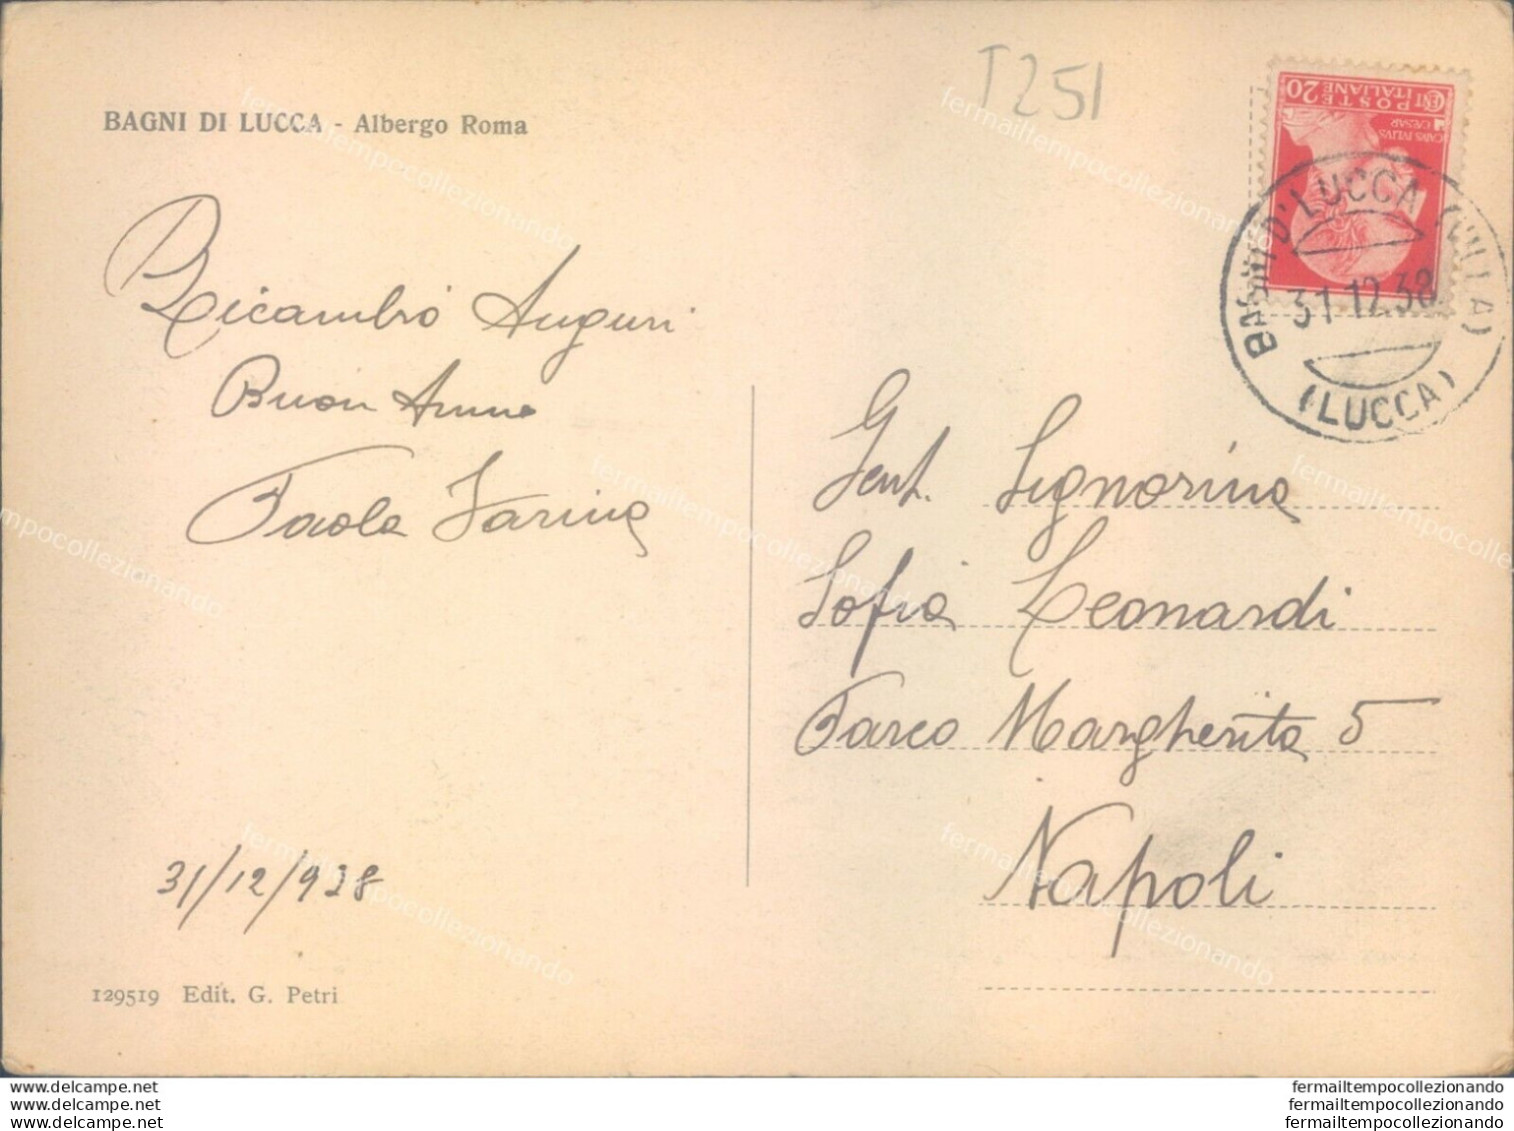 T251
BAGNI DI LUCCA - Albergo Roma
CENT POSTE 20
ITALIANE
CAIVS IVLIVS
CAESAR
BAGNI D' LUCCA (VILLA)
31.12.38
(LUCCA)
Ricambio Auguri
Buon Anno
Paola Farina
31/12/938
129519 Edit. G. Petri
Gent. Signorina
Sofia Leonardi
Parco Margherita 5
Napoli
fermailtempocollezionando
fermailtempocollezionando
fermailtempocollezionando
fermailtempocollezionando
fermailtempocollezionando
fermailtempocollezionando
delcampe.net
delcampe.net
delcampe.net
fermailtempocollezionando
fermailtempocollezionando
fermailtempocollezionando